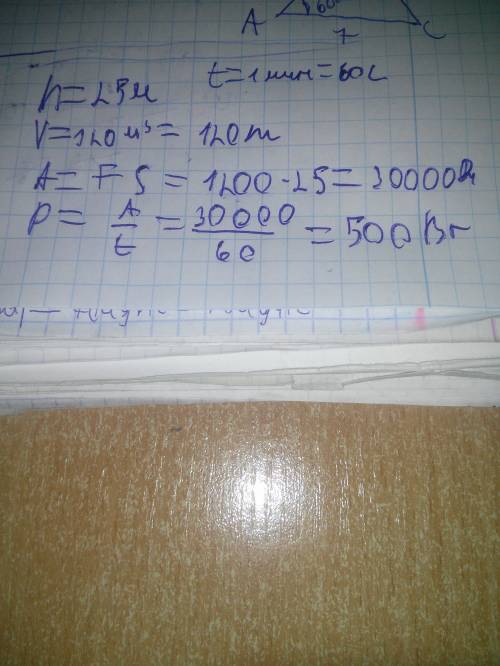 A 60 C
7
t=1мин=60с
h=25м
V=120м³= 120т
A= F S = 1200·25= 30000Д
P= A/t = 30000/60 = 500Вт